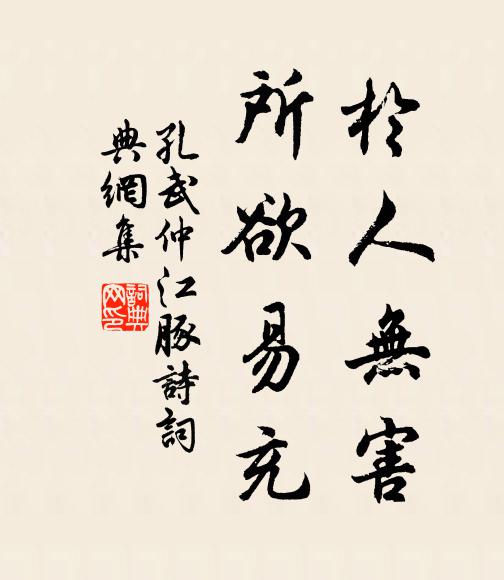 於人無害
所欲易充
孔武仲江豚詩詞
典網集
詞典
网印